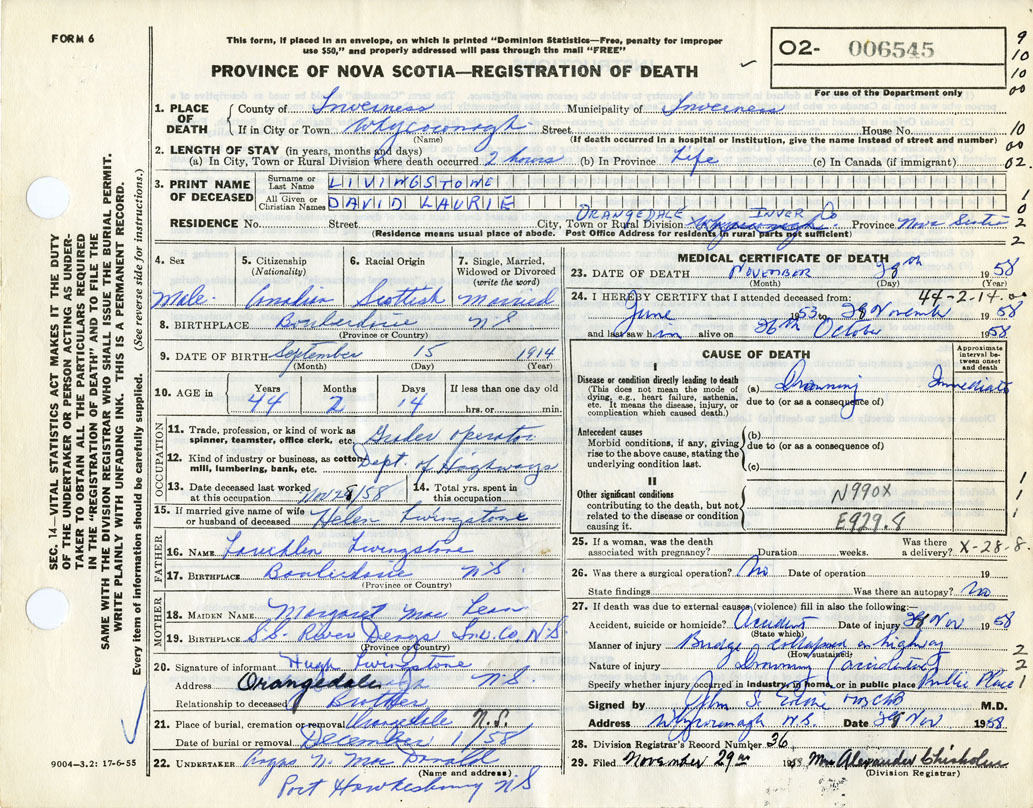 FORM 6
This form, if placed in an envelope, on which is printed "Dominion Statistics—Free, penalty for improper
use $50," and properly addressed will pass through the mail "FREE"
PROVINCE OF NOVA SCOTIA—REGISTRATION OF DEATH
O2- 006545
For use of the Department only
9
10
10
00
10
00
02.
1
0
2
2
1. PLACE OF DEATH
County of Inverness Municipality of Inverness
If in City or Town Whycocomagh Street House No.
(Name) (If death occurred in a hospital or institution, give the name instead of street and number)
2. LENGTH OF STAY (in years, months and days)
(a) In City, Town or Rural Division where death occurred 2 hours (b) In Province Life (c) In Canada (if immigrant)
3. PRINT NAME OF DECEASED
Surname or Last Name LIVINGSTONE
All Given or Christian Names DAVID LAURIE
ORANGEDALE INVER Co
RESIDENCE No. Street City, Town or Rural Division Province Nova Scotia
(Residence means usual place of abode. Post Office Address for residents in rural parts not sufficient)
SEC. 14—VITAL STATISTICS ACT MAKES IT THE DUTY
OF THE UNDERTAKER OR PERSON ACTING AS UNDER-
TAKER TO OBTAIN ALL THE PARTICULARS REQUIRED
IN THE "REGISTRATION OF DEATH" AND TO FILE THE
SAME WITH THE DIVISION REGISTRAR WHO SHALL ISSUE THE BURIAL PERMIT.
WRITE PLAINLY WITH UNFADING INK. THIS IS A PERMANENT RECORD.
Every item of information should be carefully supplied. (See reverse side for instructions.)
4. Sex
Male
5. Citizenship
(Nationality)
Canadian
6. Racial Origin
Scottish
7. Single, Married,
Widowed or Divorced
(write the word)
Married
8. BIRTHPLACE N S
(Province or Country)
9. DATE OF BIRTH September 15 1914
(Month) (Day) (Year)
10. AGE in
Years Months Days If less than one day old
44 2 14 hrs. or min.
OCCUPATION
11. Trade, profession, or kind of work as
spinner, teamster, office clerk, etc. Grader operator
12. Kind of industry or business, as cotton
mill, lumbering, bank, etc. Dept. of Highways
13. Date deceased last worked
at this occupation Nov 28/58
14. Total yrs. spent in
this occupation
15. If married give name of wife
or husband of deceased Helen Livingstone
FATHER
16. NAME Lauchlen Livingstone
17. BIRTHPLACE N.S.
(Province or Country)
MOTHER
18. MAIDEN NAME Margaret Mac Lean
19. BIRTHPLACE S.S. River Denys Inv. Co. N S
(Province or Country)
20. Signature of informant Hugh Livingstone
Address Orangedale N.S.
Relationship to deceased Brother
21. Place of burial, cremation or removal Orangedale N.S.
Date of burial or removal December 1/58
22. UNDERTAKER Angus N. Mac Donald
(Name and address)
Port Hawkesbury N S
9004—3.2: 17-6-55
MEDICAL CERTIFICATE OF DEATH
23. DATE OF DEATH NOVEMBER 28th 1958
(Month) (Day) (Year)
24. I HEREBY CERTIFY that I attended deceased from: 44-2-14.00
June 1953 to 28 Novemb 1958
and last saw him alive on 26th October 1958
CAUSE OF DEATH
Approximate
interval be-
tween onset
and death
I
Disease or condition directly leading to death
(This does not mean the mode of
dying, e.g., heart failure, asthenia,
etc. It means the disease, injury, or
complication which caused death.)
(a) Drowning Immediate
due to (or as a consequence of)
Antecedent causes
Morbid conditions, if any, giving
rise to the above cause, stating the
underlying condition last.
(b)
due to (or as a consequence of)
(c)
II
Other significant conditions
contributing to the death, but not
related to the disease or condition
causing it.
N990X
E929.8
1
1
1
25. If a woman, was the death
associated with pregnancy? Duration weeks. Was there
a delivery? X-28-8.
26. Was there a surgical operation? No Date of operation 19
State findings Was there an autopsy? No
27. If death was due to external causes (violence) fill in also the following:—
Accident, suicide or homicide? Accident Date of injury 28 Nov 1958
(State which)
Manner of injury Bridge collapsed on highway 2
(How sustained)
Nature of injury Drowning (accidental) 2
Specify whether injury occurred in industry, in home, or in public place Public Place 1
Signed by John S. M.D.
Address Whycocomagh N.S. Date 28 Nov 1958
28. Division Registrar's Record Number 36
29. Filed November 29th 1958 Mrs Alexander Chisholm
(Division Registrar)